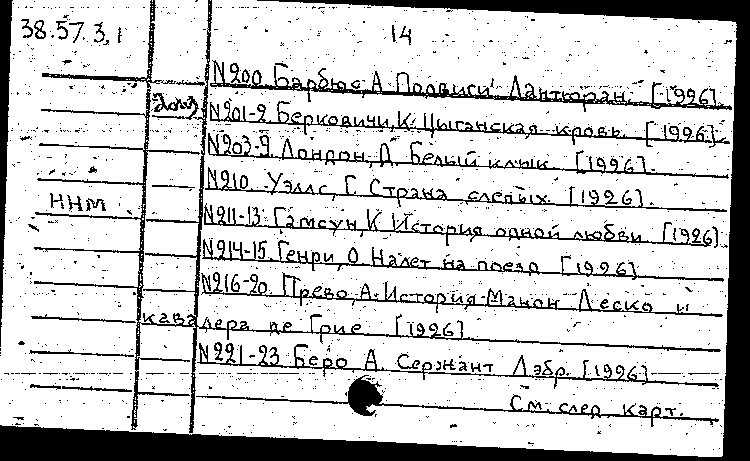 38.57.3,1
14
N200. Барбюс, А. Подвиги Лантюран. [1926].
N201-2. Беркович, К. Цыганская кровь. [1926].
N203-9. Лондон, Д. Белый клык. [1926].
N210. Уэллс, Г. Страна слепых. [1926].
ННМ
N211-13. Гамсун, К. История одной любви. [1926]
N214-15. Генри, О. Налет на поезд. [1926]
N216-20. Прево, А. История Манон Леско и
кавалера де Грие. [1926]
N221-23. Беро, А. Сержант Лэбр. [1926]
См. след. карт.